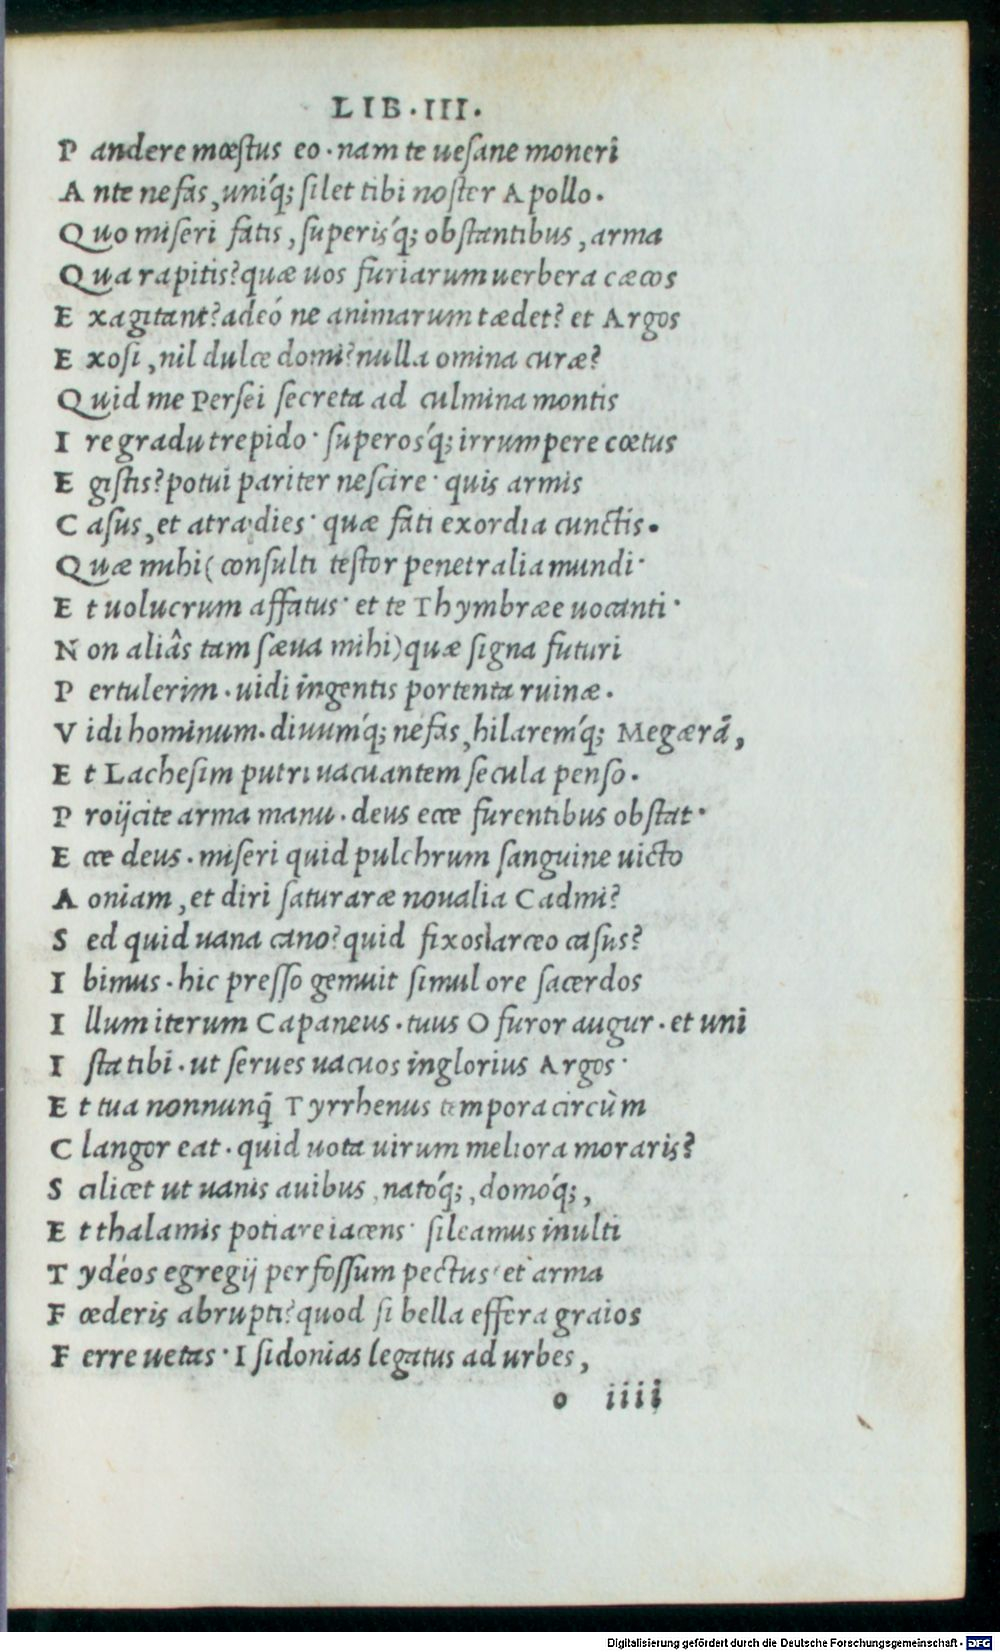 LIB. III.
P andere mœstus eo. nam te uesane moneri
A nte nefas, uniq́; silet tibi noster Apollo.
Q uo miseri fatis, superisq́; obstantibus, arma
Q ua rapitis? quæ uos furiarum uerbera cæcos
E xagitant? adeó ne animarum tædet? et Argos
E xosi, nil dulce domi? nulla omina curæ?
Q uid me Persei secreta ad culmina montis
I re gradu trepido· superosq́; irrumpere cœtus
E gistis? potui pariter nescire· quis armis
C asus, et atra dies· quæ fati exordia cunctis.
Q uæ mihi( consulti testor penetralia mundi·
E t uolucrum affatus· et te Thymbræe uocanti·
N on aliâs tam sæua mihi) quæ signa futuri
P ertulerim. uidi ingentis portenta ruinæ.
V idi hominum. diuumq́; nefas, hilaremq́; Megærã,
E t Lachesim putri uacuantem secula penso.
P roijcite arma manu. deus ecce furentibus obstat·
E cce deus. miseri quid pulchrum sanguine uicto
A oniam, et diri saturare noualia Cadmi?
S ed quid uana cano? quid fixos arceo casus?
I bimus. hic presso gemuit simul ore sacerdos
I llum iterum Capaneus. tuus O furor augur. et uni
I sta tibi. ut serues uacuos inglorius Argos·
E t tua nonnunq̃ Tyrrhenus tempora circùm
C langor eat. quid uota uirum meliora moraris?
S cilicet ut uanis auibus, natóq́;, domóq́;,
E t thalamis potiare iacens· sileamus inulti
T ydéos egregij perfossum pectus· et arma
F œderis abrupti? quod si bella effera graios
F erre uetas· I sidonias legatus ad urbes,
o iiii
Digitalisierung gefördert durch die Deutsche Forschungsgemeinschaft - DFG